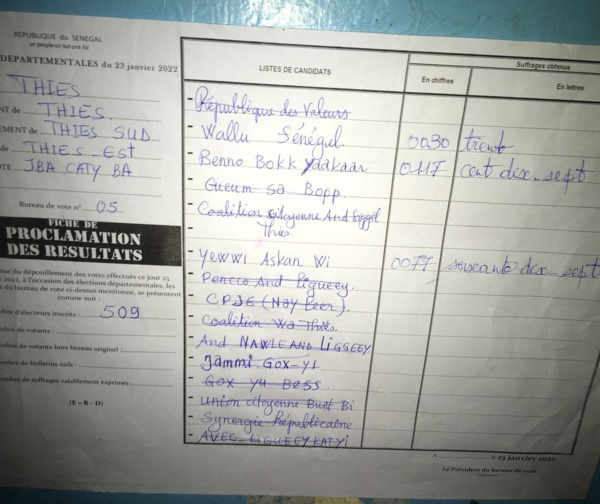 REPUBLIQUE DU SENEGAL
un peuple-un but-une foi
DEPARTEMENTALES du 23 janvier 2022
THIES
NT de THIES.
EMENT de THIES SUD
de THIES EST
OTE JBA CATY BA
Bureau de vote n° 05
FICHE DE
PROCLAMATION
DES RESULTATS
ue du dépouillement des votes effectués ce jour 23
2022, à l'occasion des élections départementales, les
du bureau de vote ci-dessus mentionné, se présentent
comme suit :
bre d'électeurs inscrits : 509
mbre de votants :
mbre de votants hors bureau originel :
mbre de bulletins nuls :
mbre de suffrages valablement exprimés :
(E = B - D)
LISTES DE CANDIDATS
Suffrages obtenus
En chiffres
En lettres
- République des Valeurs
- Wallu Sénégal 0030 trente
- Benno Bokk Yaakaar 0117 cent dix-sept
- Gueum sa Bopp.
- Coalition citoyenne And
- Thies.
- Yewwi Askan Wi 0077 soixante dix-sept
- Pencoo And Liguéey.
- CPJE (Nay Leer).
- Coalition Wa Thiès.
- And NAWLE AND LIGGEEY
- Jammi GOX-YI
- GOX YU BESS
- Union citoyenne Bunt Bi
- Synergie Républicaine
- AVEC LIGUEEY KAT YI
A le 23 janvier 2022
Le Président du bureau de vote